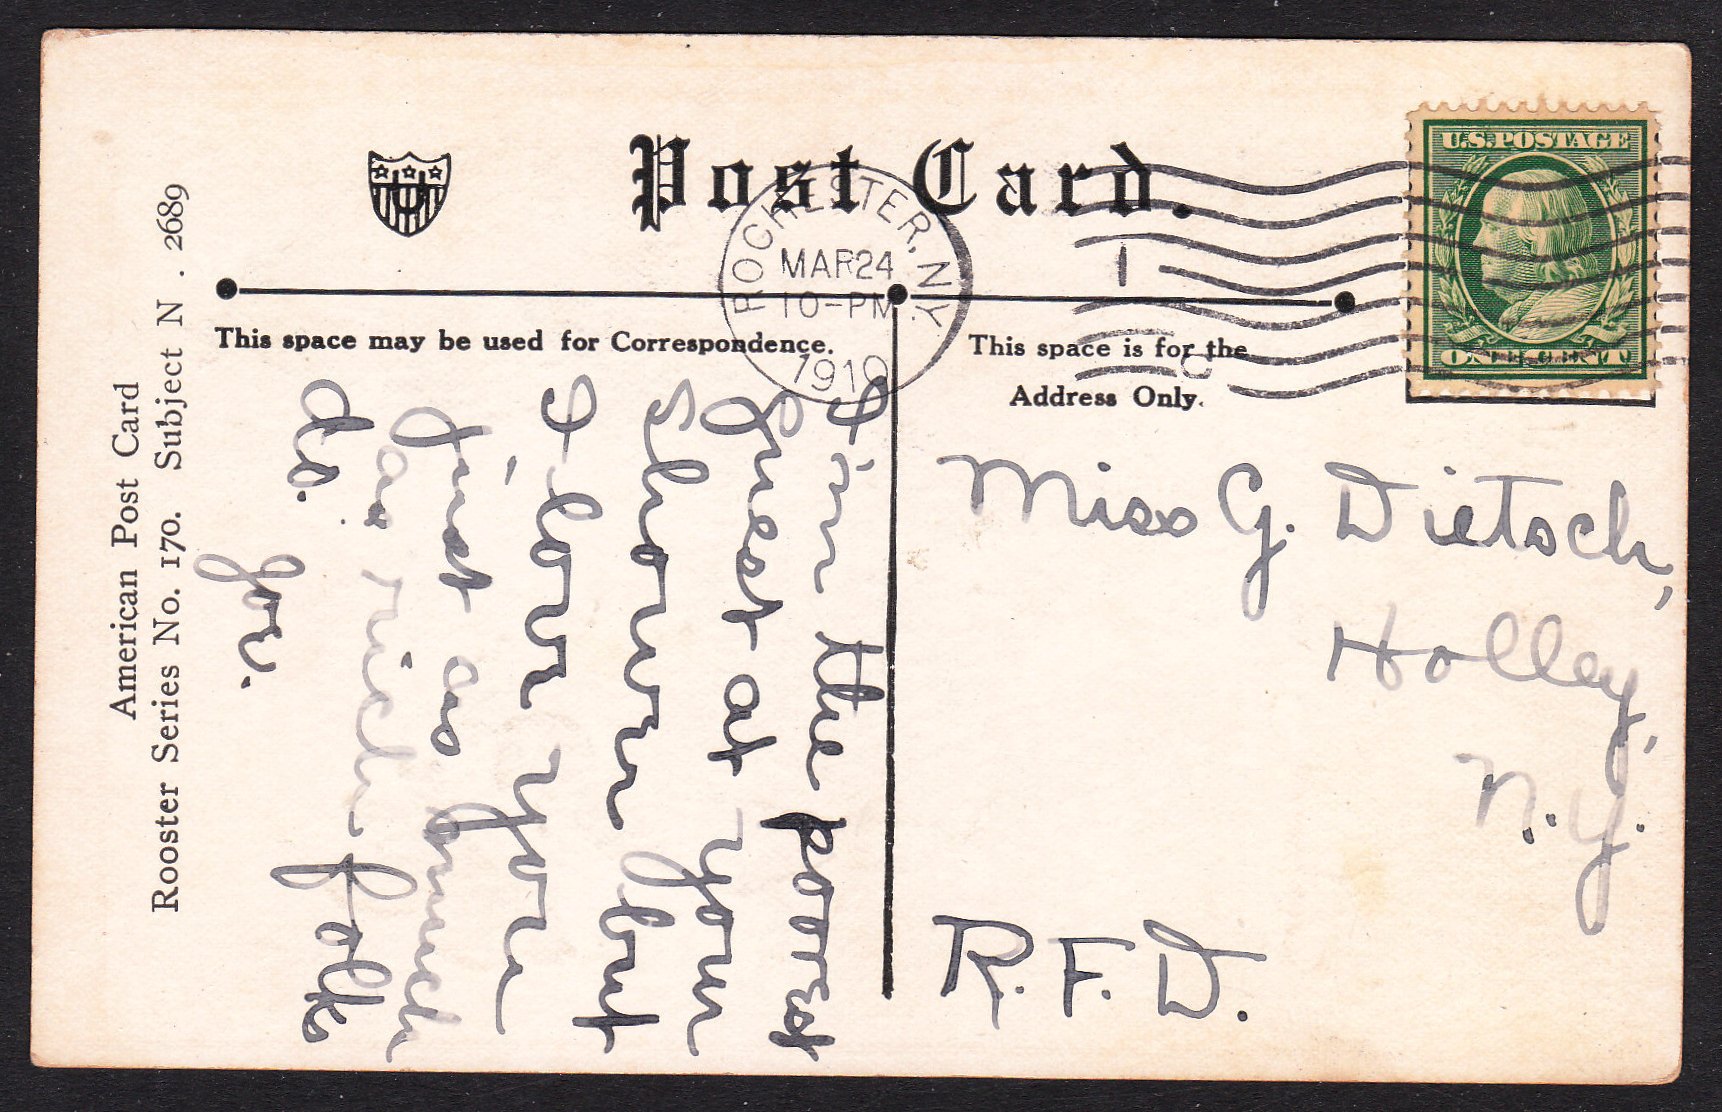 Post Card.
U.S. POSTAGE
ONE CENT
ROCHESTER, N.Y.
MAR 24
10-PM
1910
1
This space may be used for Correspondence.
This space is for the
Address Only.
American Post Card
Rooster Series No. 170. Subject N . 2689
I'm the poorest
guest at your
Shower but
I love you
just as much
as rich folks
do.
Miss G. Dietsch,
Holley,
N.Y.
R.F.D.